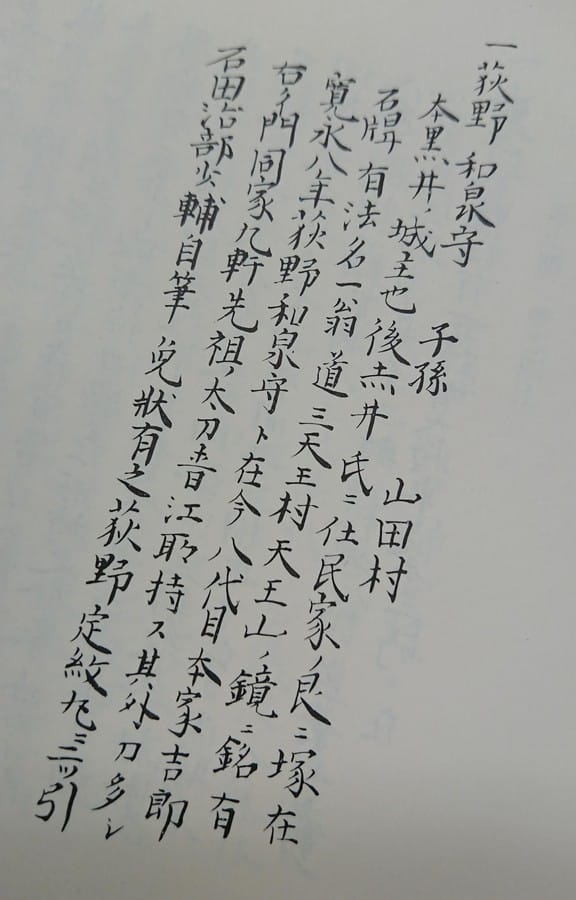 一荻野 和泉守 子孫 山田村
本黒井ノ城主也後赤井氏ニ仕民家ノ艮ニ塚在
石牌有法名一翁道三天王村天王山ノ鏡ニ銘有
寛永八年荻野和泉守ト在今八代目本家吉郎
右ノ門同家九軒先祖ノ太刀香江耶持ス其外刀多シ
石田治部少輔自筆 免状有之荻野定紋丸ニ三ツ引